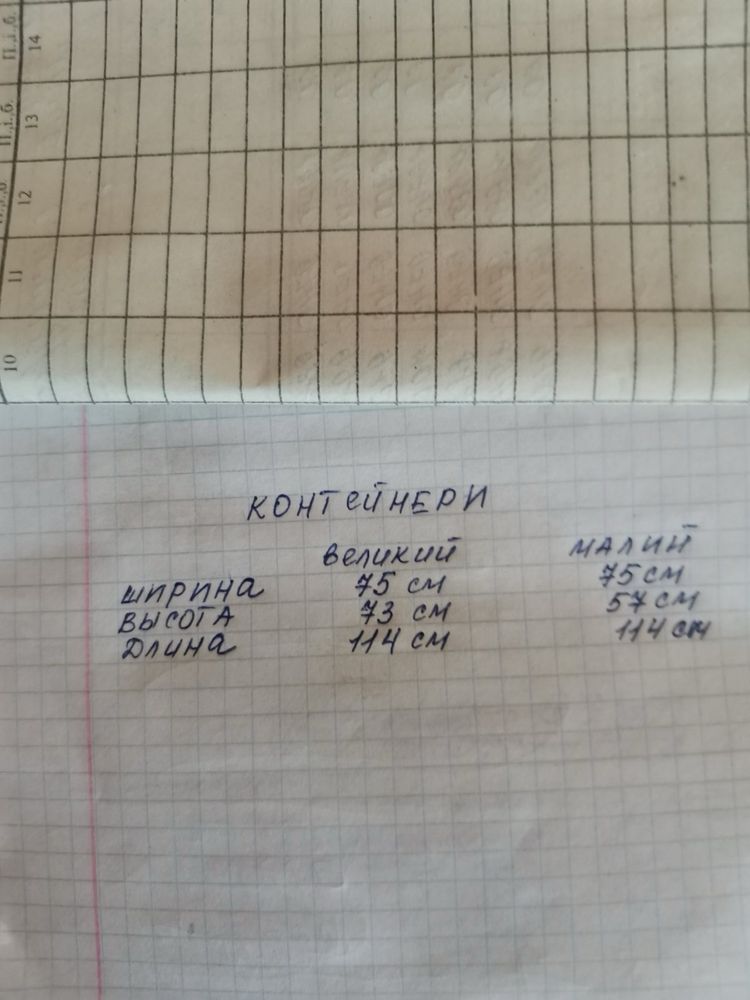 П.,і.,б.
14
13
12
11
10
КОНТЕЙНЕРИ
ВЕЛИКИЙ МАЛИЙ
ШИРИНА 75 СМ 75 СМ
ВЫСОТА 73 СМ 57 СМ
ДЛИНА 114 СМ 114 СМ